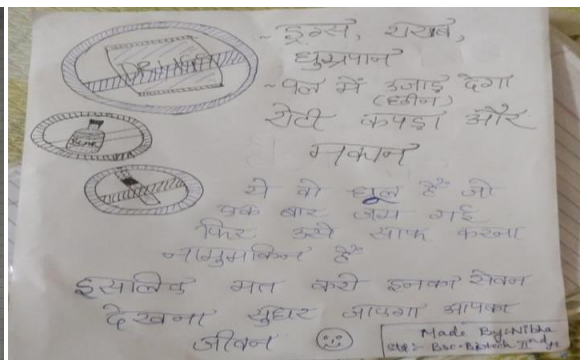 DRUGS
~ ड्रग्स, शराब,
धुम्रपान
~ पल में उजाड़ देगा
(छीन)
रोटी कपड़ा और
मकान
ये वो धूल हैं जो
एक बार जम गई
फिर उसे साफ करना
नामुमकिन हैं
इसलिए मत करो इनका सेवन
देखना सुधर जाएगा आपका
जीवन
Made By:-Nibha
Bsc-Biotech IInd yr